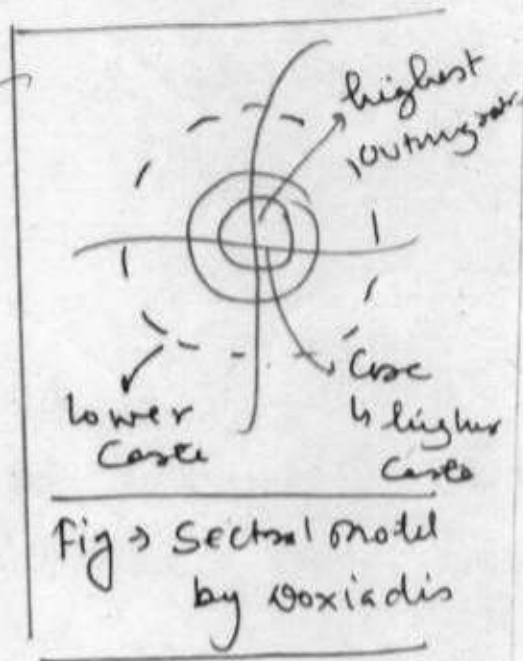 highest
lower
Caste
Core
↳ higher
Caste
Fig → Sectoral model
by Doxiadis